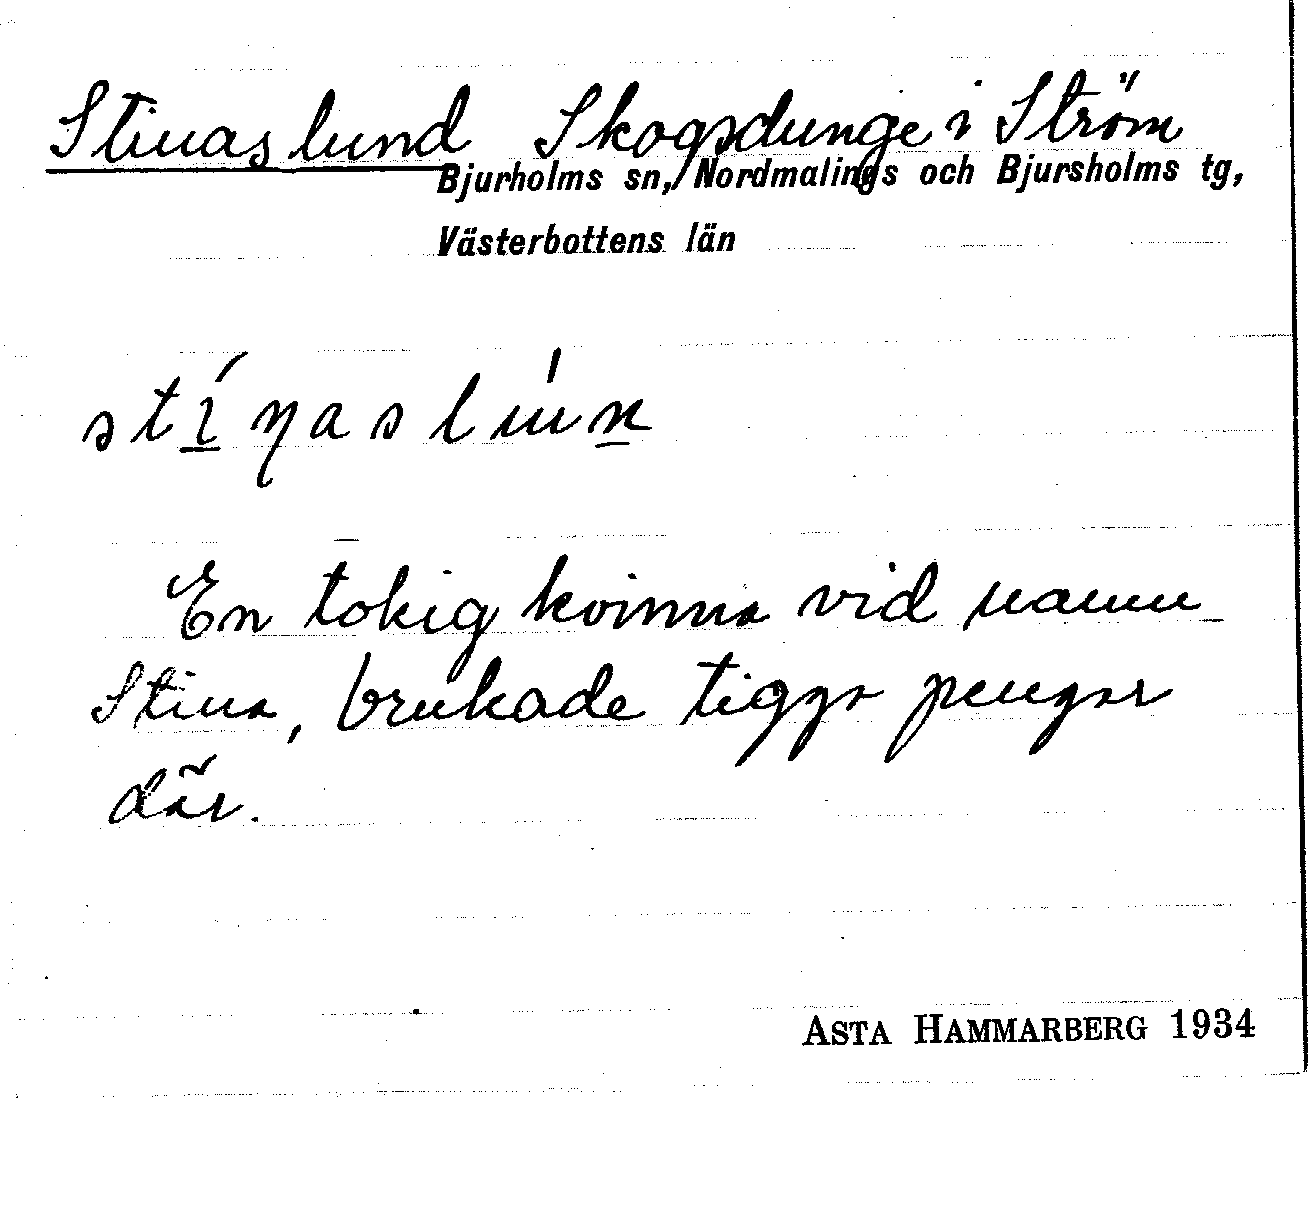 Stinaslund Skogsdunge i Ström
Bjurholms sn, Nordmalings och Bjursholms tg,
Västerbottens län
stí̲ŋaslúṉ
En tokig kvinna vid namn
Stina, brukade tigga pengar
där.
ASTA HAMMARBERG 1934